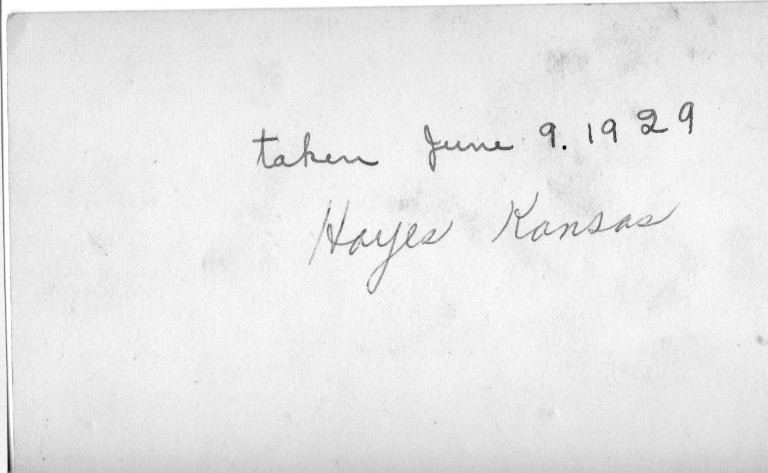 taken June 9. 1929
Hayes Kansas